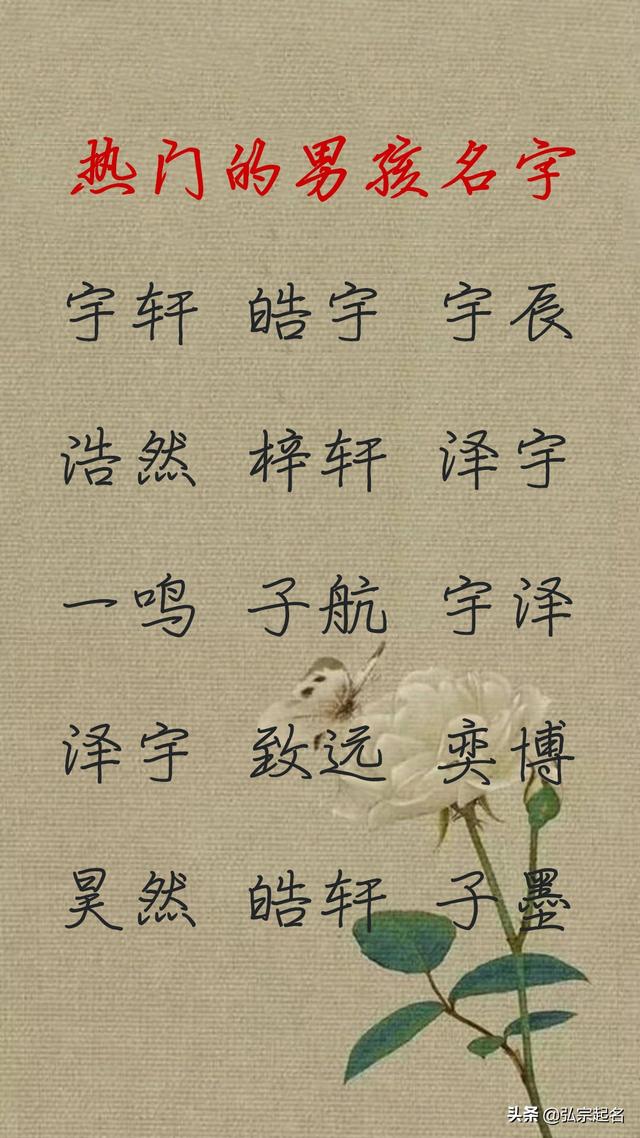 热门的男孩名字
宇轩 皓宇 宇辰
浩然 梓轩 泽宇
一鸣 子航 宇泽
泽宇 致远 奕博
昊然 皓轩 子墨
头条 @弘宗起名